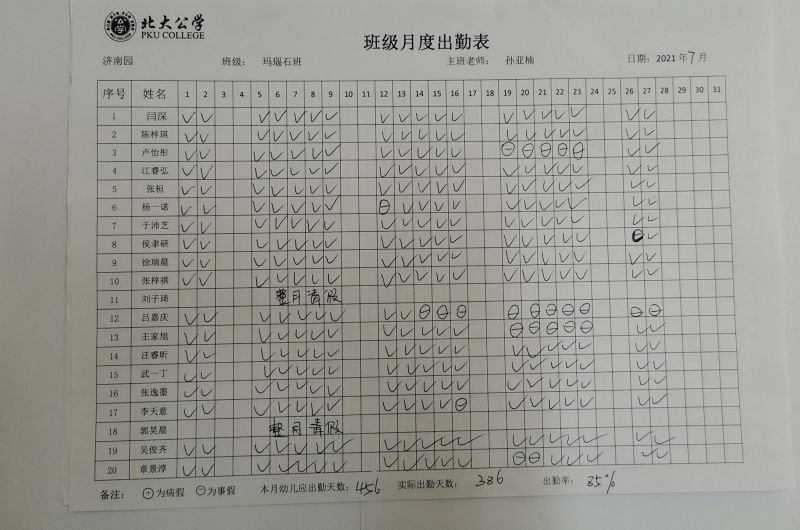 北大公学
PKU COLLEGE
班级月度出勤表
济南园 班级: 玛瑙石班 主班老师: 孙亚楠 日期: 2021 年 7 月
序号 姓名 1 2 3 4 5 6 7 8 9 10 11 12 13 14 15 16 17 18 19 20 21 22 23 24 25 26 27 28 29 30 31
1 闫深 √ √ √ √ √ √ √ √ √ √ √ √ √ √ √ √ √ √ √
2 陈梓琪 √ √ √ √ √ √ √ √ √ √ √ √ √ √ √ √ √ √ √
3 卢怡彤 √ √ √ √ √ √ √ √ √ √ √ √ ⊖ ⊖ ⊖ ⊖ ⊖ √ √
4 江睿弘 √ √ √ √ √ √ √ √ √ √ √ √ √ √ √ √ √ √ √
5 张桓 √ √ √ √ √ √ √ √ √ √ √ √ √ √ √ √ √ √ √
6 杨一诺 √ √ √ √ √ √ √ ⊖ √ √ √ √ √ √ √ √ √ √ √
7 于沛芝 √ √ √ √ √ √ √ √ √ √ √ √ √ √ √ √ √ √ √
8 侯聿研 √ √ √ √ √ √ √ √ √ √ √ √ √ √ √ √ √ ⊖ √
9 徐瑞晨 √ √ √ √ √ √ √ √ √ √ √ √ √ √ √ √ √ √ √
10 张梓祺 √ √ √ √ √ √ √ √ √ √ √ √ √ √ √ √ √ √ √
11 刘子琦 整月请假
12 吕嘉庆 √ √ √ √ √ √ √ √ √ ⊖ ⊖ ⊖ ⊖ ⊖ ⊖ ⊖ ⊖ ⊖ ⊖
13 王家旭 √ √ √ √ √ √ √ √ √ √ √ √ ⊖ ⊖ ⊖ ⊖ ⊖ √ √
14 汪睿昕 √ √ √ √ √ √ √ √ √ √ √ √ √ √ √ √ √ √ √
15 武一丁 √ √ √ √ √ √ √ √ √ √ √ √ √ √ √ √ √ √ √
16 张逸墨 √ √ √ √ √ √ √ √ √ √ √ √ √ √ √ √ √ √ √
17 李天意 √ √ √ √ √ √ √ √ √ √ √ ⊖ √ √ √ √ √ √ √
18 郭昊晨 整月请假
19 吴俊齐 √ √ √ √ √ √ √ √ √ √ √ √ √ √ √ √ √ √ √
20 章景淳 √ √ √ √ √ √ √ √ √ √ √ √ ⊖ ⊖ √ √ √ √ √
备注: ⊕为病假 ⊖为事假 本月幼儿应出勤天数: 456 实际出勤天数: 386 出勤率: 85%